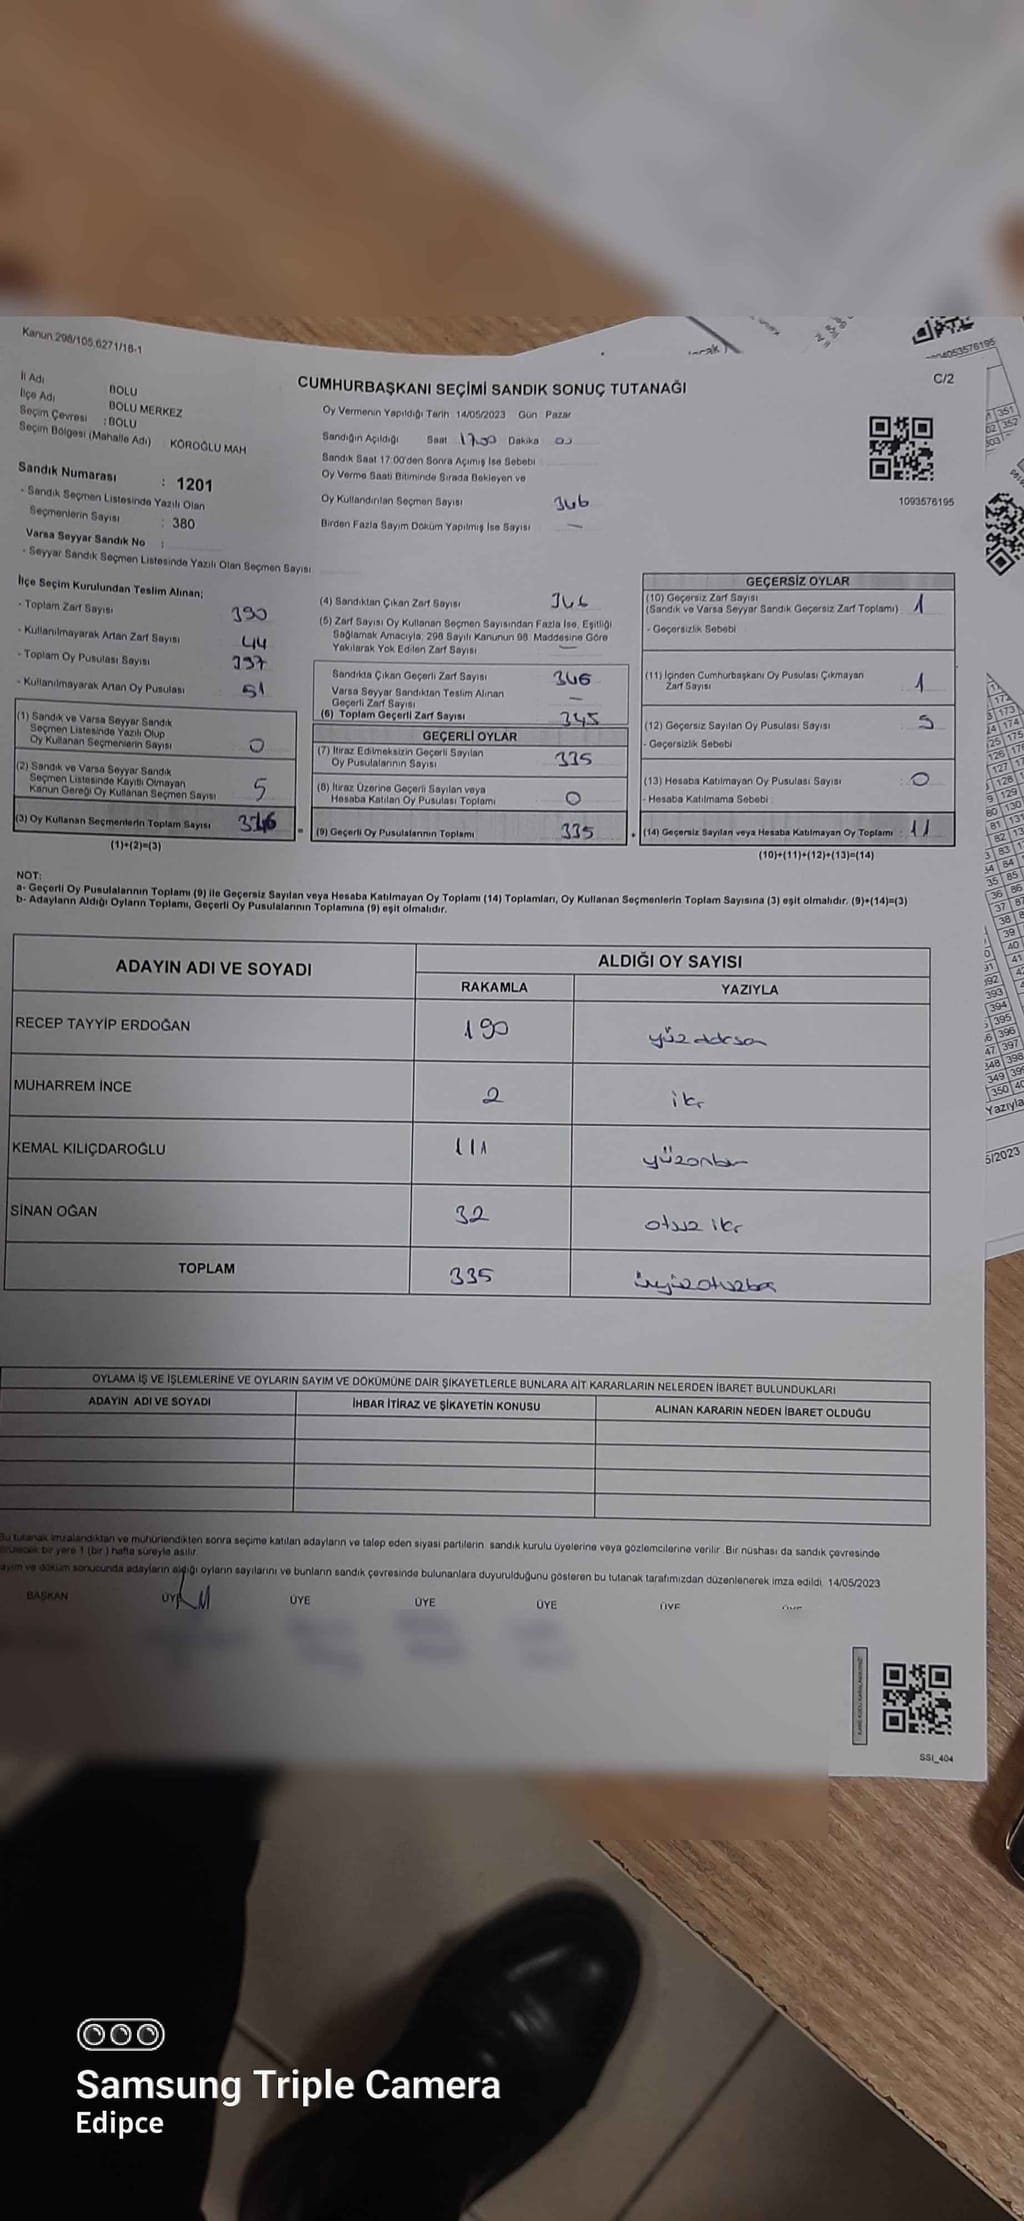 Kanun 298/105,6271/18-1
C/2
CUMHURBAŞKANI SEÇİMİ SANDIK SONUÇ TUTANAĞI
İl Adı BOLU
İlçe Adı BOLU MERKEZ
Seçim Çevresi : BOLU
Seçim Bölgesi (Mahalle Adı) KÖROĞLU MAH
Sandık Numarası : 1201
- Sandık Seçmen Listesinde Yazılı Olan
Seçmenlerin Sayısı : 380
Varsa Seyyar Sandık No :
- Seyyar Sandık Seçmen Listesinde Yazılı Olan Seçmen Sayısı
Oy Vermenin Yapıldığı Tarih 14/05/2023 Gün Pazar
Sandığın Açıldığı Saat 17.00 Dakika 00
Sandık Saat 17:00'den Sonra Açımış İse Sebebi
Oy Verme Saati Bitiminde Sırada Bekleyen ve
Oy Kullandırılan Seçmen Sayısı 346
Birden Fazla Sayım Döküm Yapılmış İse Sayısı —
1093576195
İlçe Seçim Kurulundan Teslim Alınan;
- Toplam Zarf Sayısı 390
- Kullanılmayarak Artan Zarf Sayısı 44
- Toplam Oy Pusulası Sayısı 397
- Kullanılmayarak Artan Oy Pusulası 51
(1) Sandık ve Varsa Seyyar Sandık
Seçmen Listesinde Yazılı Olup
Oy Kullanan Seçmenlerin Sayısı 0
(2) Sandık ve Varsa Seyyar Sandık
Seçmen Listesinde Kayıtlı Olmayan
Kanun Gereği Oy Kullanan Seçmen Sayısı 5
(3) Oy Kullanan Seçmenlerin Toplam Sayısı 346
(1)+(2)=(3)
(4) Sandıktan Çıkan Zarf Sayısı 346
(5) Zarf Sayısı Oy Kullanan Seçmen Sayısından Fazla İse, Eşitliği
Sağlamak Amacıyla, 298 Sayılı Kanunun 98. Maddesine Göre
Yakılarak Yok Edilen Zarf Sayısı —
Sandıkta Çıkan Geçerli Zarf Sayısı 346
Varsa Seyyar Sandıktan Teslim Alınan
Geçerli Zarf Sayısı —
(6) Toplam Geçerli Zarf Sayısı 345
GEÇERLİ OYLAR
(7) İtiraz Edilmeksizin Geçerli Sayılan
Oy Pusulalarının Sayısı 335
(8) İtiraz Üzerine Geçerli Sayılan veya
Hesaba Katılan Oy Pusulası Toplamı 0
(9) Geçerli Oy Pusulalarının Toplamı 335
GEÇERSİZ OYLAR
(10) Geçersiz Zarf Sayısı
(Sandık ve Varsa Seyyar Sandık Geçersiz Zarf Toplamı) 1
- Geçersizlik Sebebi
(11) İçinden Cumhurbaşkanı Oy Pusulası Çıkmayan
Zarf Sayısı 1
(12) Geçersiz Sayılan Oy Pusulası Sayısı 9
- Geçersizlik Sebebi
(13) Hesaba Katılmayan Oy Pusulası Sayısı 0
- Hesaba Katılmama Sebebi
(14) Geçersiz Sayılan veya Hesaba Katılmayan Oy Toplamı : 11
(10)+(11)+(12)+(13)=(14)
NOT:
a- Geçerli Oy Pusulalarının Toplamı (9) ile Geçersiz Sayılan veya Hesaba Katılmayan Oy Toplamı (14) Toplamları, Oy Kullanan Seçmenlerin Toplam Sayısına (3) eşit olmalıdır. (9)+(14)=(3)
b- Adayların Aldığı Oyların Toplamı, Geçerli Oy Pusulalarının Toplamına (9) eşit olmalıdır.
ADAYIN ADI VE SOYADI ALDIĞI OY SAYISI
RAKAMLA YAZIYLA
RECEP TAYYİP ERDOĞAN 190 yüz doksan
MUHARREM İNCE 2 iki
KEMAL KILIÇDAROĞLU 111 yüzonbir
SİNAN OĞAN 32 otuz iki
TOPLAM 335 üçyüzotuzbeş
OYLAMA İŞ VE İŞLEMLERİNE VE OYLARIN SAYIM VE DÖKÜMÜNE DAİR ŞİKAYETLERLE BUNLARA AİT KARARLARIN NELERDEN İBARET BULUNDUKLARI
ADAYIN ADI VE SOYADI İHBAR İTİRAZ VE ŞİKAYETİN KONUSU ALINAN KARARIN NEDEN İBARET OLDUĞU
Bu tutanak imzalandıktan ve mühürlendikten sonra seçime katılan adayların ve talep eden siyasi partilerin sandık kurulu üyelerine veya gözlemcilerine verilir. Bir nüshası da sandık çevresinde
bir yere 1 (bir) hafta süreyle asılır.
Sayım ve döküm sonucunda adayların aldığı oyların sayılarını ve bunların sandık çevresinde bulunanlara duyurulduğunu gösteren bu tutanak tarafımızdan düzenlenerek imza edildi. 14/05/2023
BAŞKAN ÜYE ÜYE ÜYE ÜYE ÜYE
SSI_404
Samsung Triple Camera
Edipce